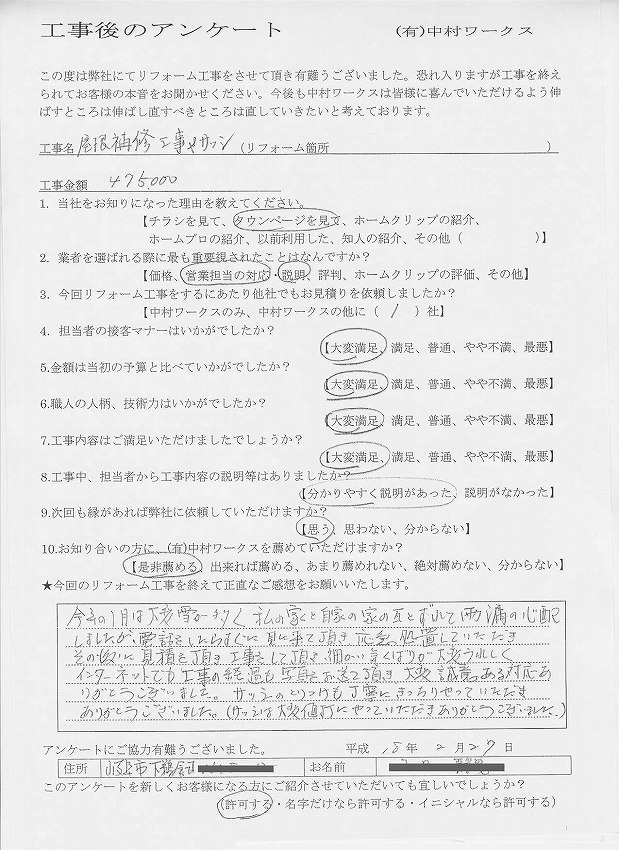 工事後のアンケート (有)中村ワークス
この度は弊社にてリフォーム工事をさせて頂き有難うございました。恐れ入りますが工事を終え
られてお客様の本音をお聞かせください。今後も中村ワークスは皆様に喜んでいただけるよう伸
ばすところは伸ばし直すべきところは直していきたいと考えております。
工事名 屋根補修工事やサッシ (リフォーム箇所 )
工事金額 475000
1. 当社をお知りになった理由を教えてください。
【チラシを見て、タウンページを見て、ホームクリップの紹介、
ホームプロの紹介、以前利用した、知人の紹介、その他 ( )】
2. 業者を選ばれる際に最も重要視されたことはなんですか?
【価格、営業担当の対応・説明、評判、ホームクリップの評価、その他】
3. 今回リフォーム工事をするにあたり他社でもお見積りを依頼しましたか?
【中村ワークスのみ、中村ワークスの他に ( / ) 社】
4. 担当者の接客マナーはいかがでしたか?
【大変満足、満足、普通、やや不満、最悪】
5.金額は当初の予算と比べていかがでしたか?
【大変満足、満足、普通、やや不満、最悪】
6.職人の人柄、技術力はいかがでしたか?
【大変満足、満足、普通、やや不満、最悪】
7.工事内容はご満足いただけましたでしょうか?
【大変満足、満足、普通、やや不満、最悪】
8.工事中、担当者から工事内容の説明等はありましたか?
【分かりやすく説明があった、説明がなかった】
9.次回も縁があれば弊社に依頼していただけますか?
【思う、思わない、分からない】
10.お知り合いの方に、(有)中村ワークスを薦めていただけますか?
【是非薦める、出来れば薦める、あまり薦めれない、絶対薦めない、分からない】
★今回のリフォーム工事を終えて正直なご感想をお願いいたします。
今年の1月は大変雪が多く 私の家くと自家の家の瓦とずれて雨漏の心配
しましたが、電話をしたらすぐに見に来て頂き 応急処置していただき
その後に見積を頂き工事をして頂き、細かい気くばりが大変うれしく
インターネットでも工事の経過も写真をお送て頂き、大変誠意ある対応あ
りがとうございました。サッシのとりつけも丁寧にきっちりやっていただき
ありがとうございました。(サッシは大変値打にやっていただきありがとうございました。)
アンケートにご協力有難うございました。 平成 18 年 2 月 27 日
住所 岐阜市下鵜飼 お名前
このアンケートを新しくお客様になる方にご紹介させていただいても宜しいでしょうか?
(許可する・名字だけなら許可する・イニシャルなら許可する)